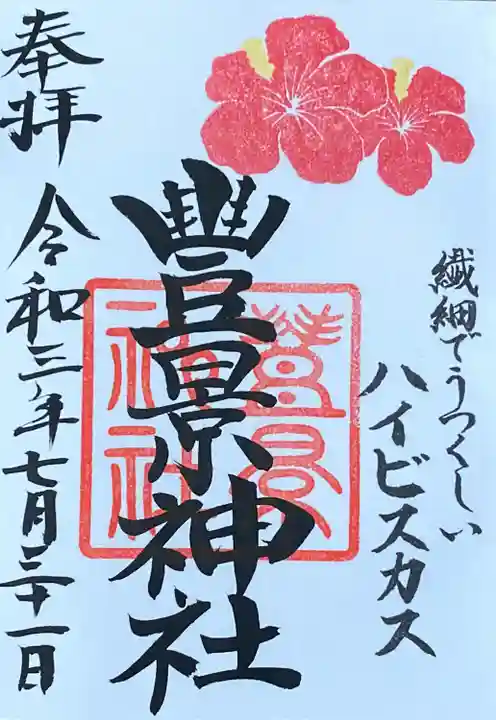 繊細でうつくしい
ハイビスカス
豊景神社
奉拝
令和三年七月三十一日
豊景
神社